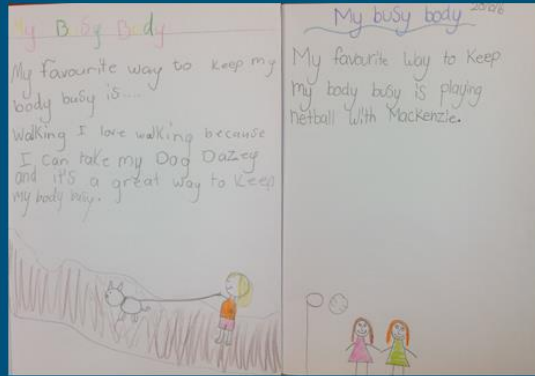 My Busy Body
My favourite way to keep my
body busy is....
Walking I love walking because
I can take my Dog Dazey
and it's a great way to keep
my body busy.
My busy body
My favourite way to Keep
my body busy is playing
netball with Mackenzie.